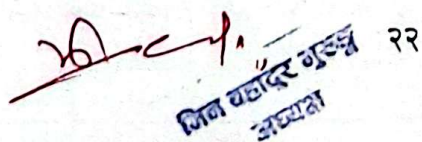 २२
जित बहादुर गुरुङ्ग
अध्यक्ष